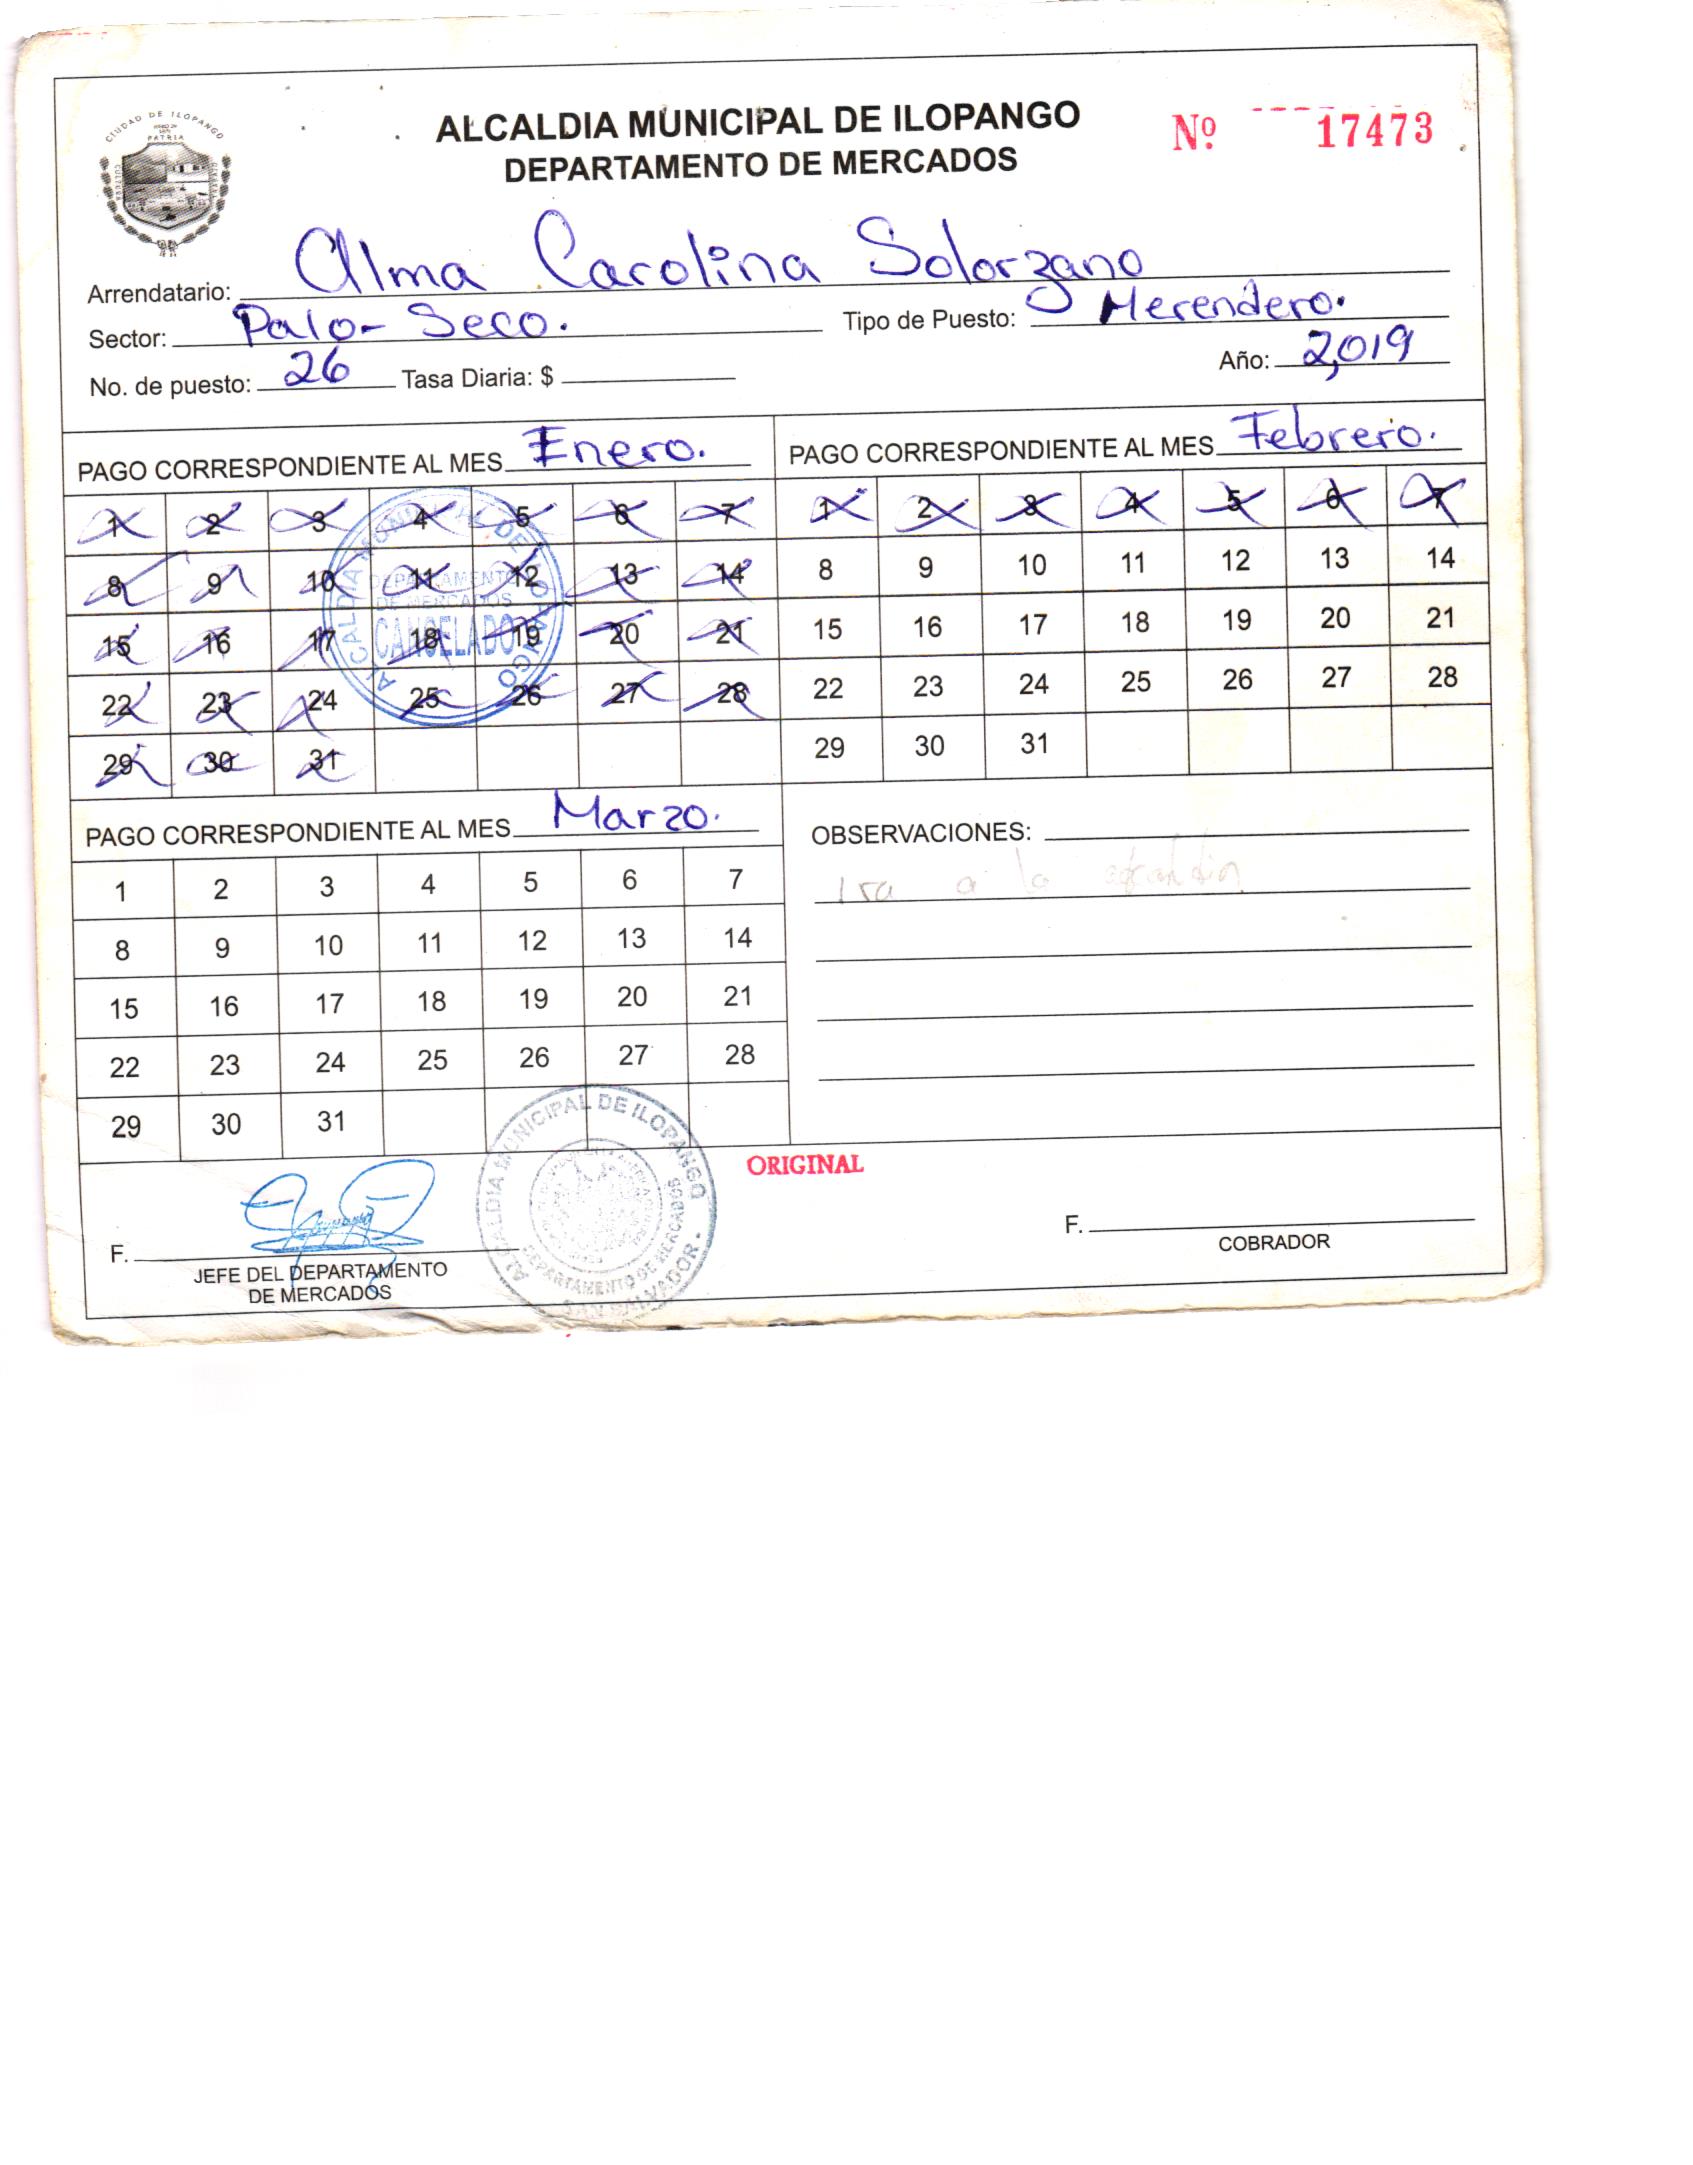 CIUDAD DE ILOPANGO
PATRIA
ALCALDIA MUNICIPAL DE ILOPANGO
DEPARTAMENTO DE MERCADOS
Nº 17473
Arrendatario: Alma Carolina Solorzano
Sector: Palo-Seco. Tipo de Puesto: Merendero.
No. de puesto: 26 Tasa Diaria: $ Año: 2,019
PAGO CORRESPONDIENTE AL MES Enero.
1 2 3 4 5 6 7
8 9 10 11 12 13 14
15 16 17 18 19 20 21
22 23 24 25 26 27 28
29 30 31
ALCALDIA MUNICIPAL DE ILOPANGO
DEPARTAMENTO
DE MERCADOS
CANCELADO
PAGO CORRESPONDIENTE AL MES Febrero.
1 2 3 4 5 6 7
8 9 10 11 12 13 14
15 16 17 18 19 20 21
22 23 24 25 26 27 28
29 30 31
PAGO CORRESPONDIENTE AL MES Marzo.
1 2 3 4 5 6 7
8 9 10 11 12 13 14
15 16 17 18 19 20 21
22 23 24 25 26 27 28
29 30 31
OBSERVACIONES:
a la
ORIGINAL
F.
JEFE DEL DEPARTAMENTO
DE MERCADOS
ALCALDIA MUNICIPAL DE ILOPANGO
DEPARTAMENTO DE MERCADOS
SAN SALVADOR.
F.
COBRADOR